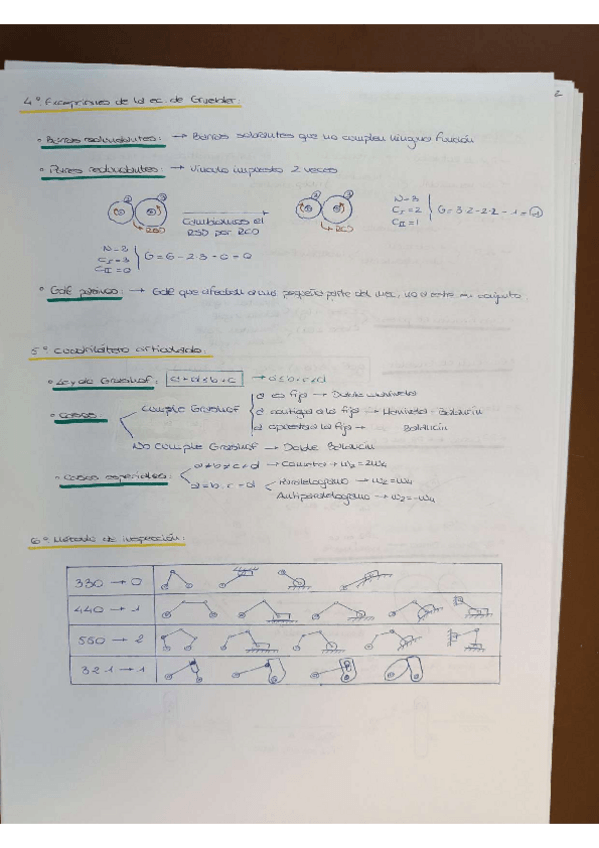 4º. Excepciones de la ec. de Gruebler:
2
• Barras redundantes: → Barras sobrantes que no cumplen ninguna función
• Pares redundantes: → Vínculo impuesto 2 veces
RSD
Cambiamos el
RSD por RCD
RCD
N=3
CI=2
CII=1
G=3·2-2·2-1=1
N=3
CI=3
CII=0
G=6-2·3-0=0
• GdL pasivos: → GdL que afectan a una pequeña parte del mec, no a todo su conjunto.
5º. Cuadrilátero articulado:
• Ley de Grashof: a+d≤b+c → a≤b≤c≤d
• Casos:
Cumple Grashof
a es fijo → Doble manivela
a contigua a la fija → Manivela - Balancín
a opuesta a la fija → Balancín
No cumple Grashof → Doble Balancín
• Casos especiales:
→ ω2=2ω4
a=b, c=d
Paralelogramo → ω2=ω4
Antiparalelogramo → ω2=-ω4
6º. Método de inspección:
330 → 0
440 → 1
550 → 2
321 → 1